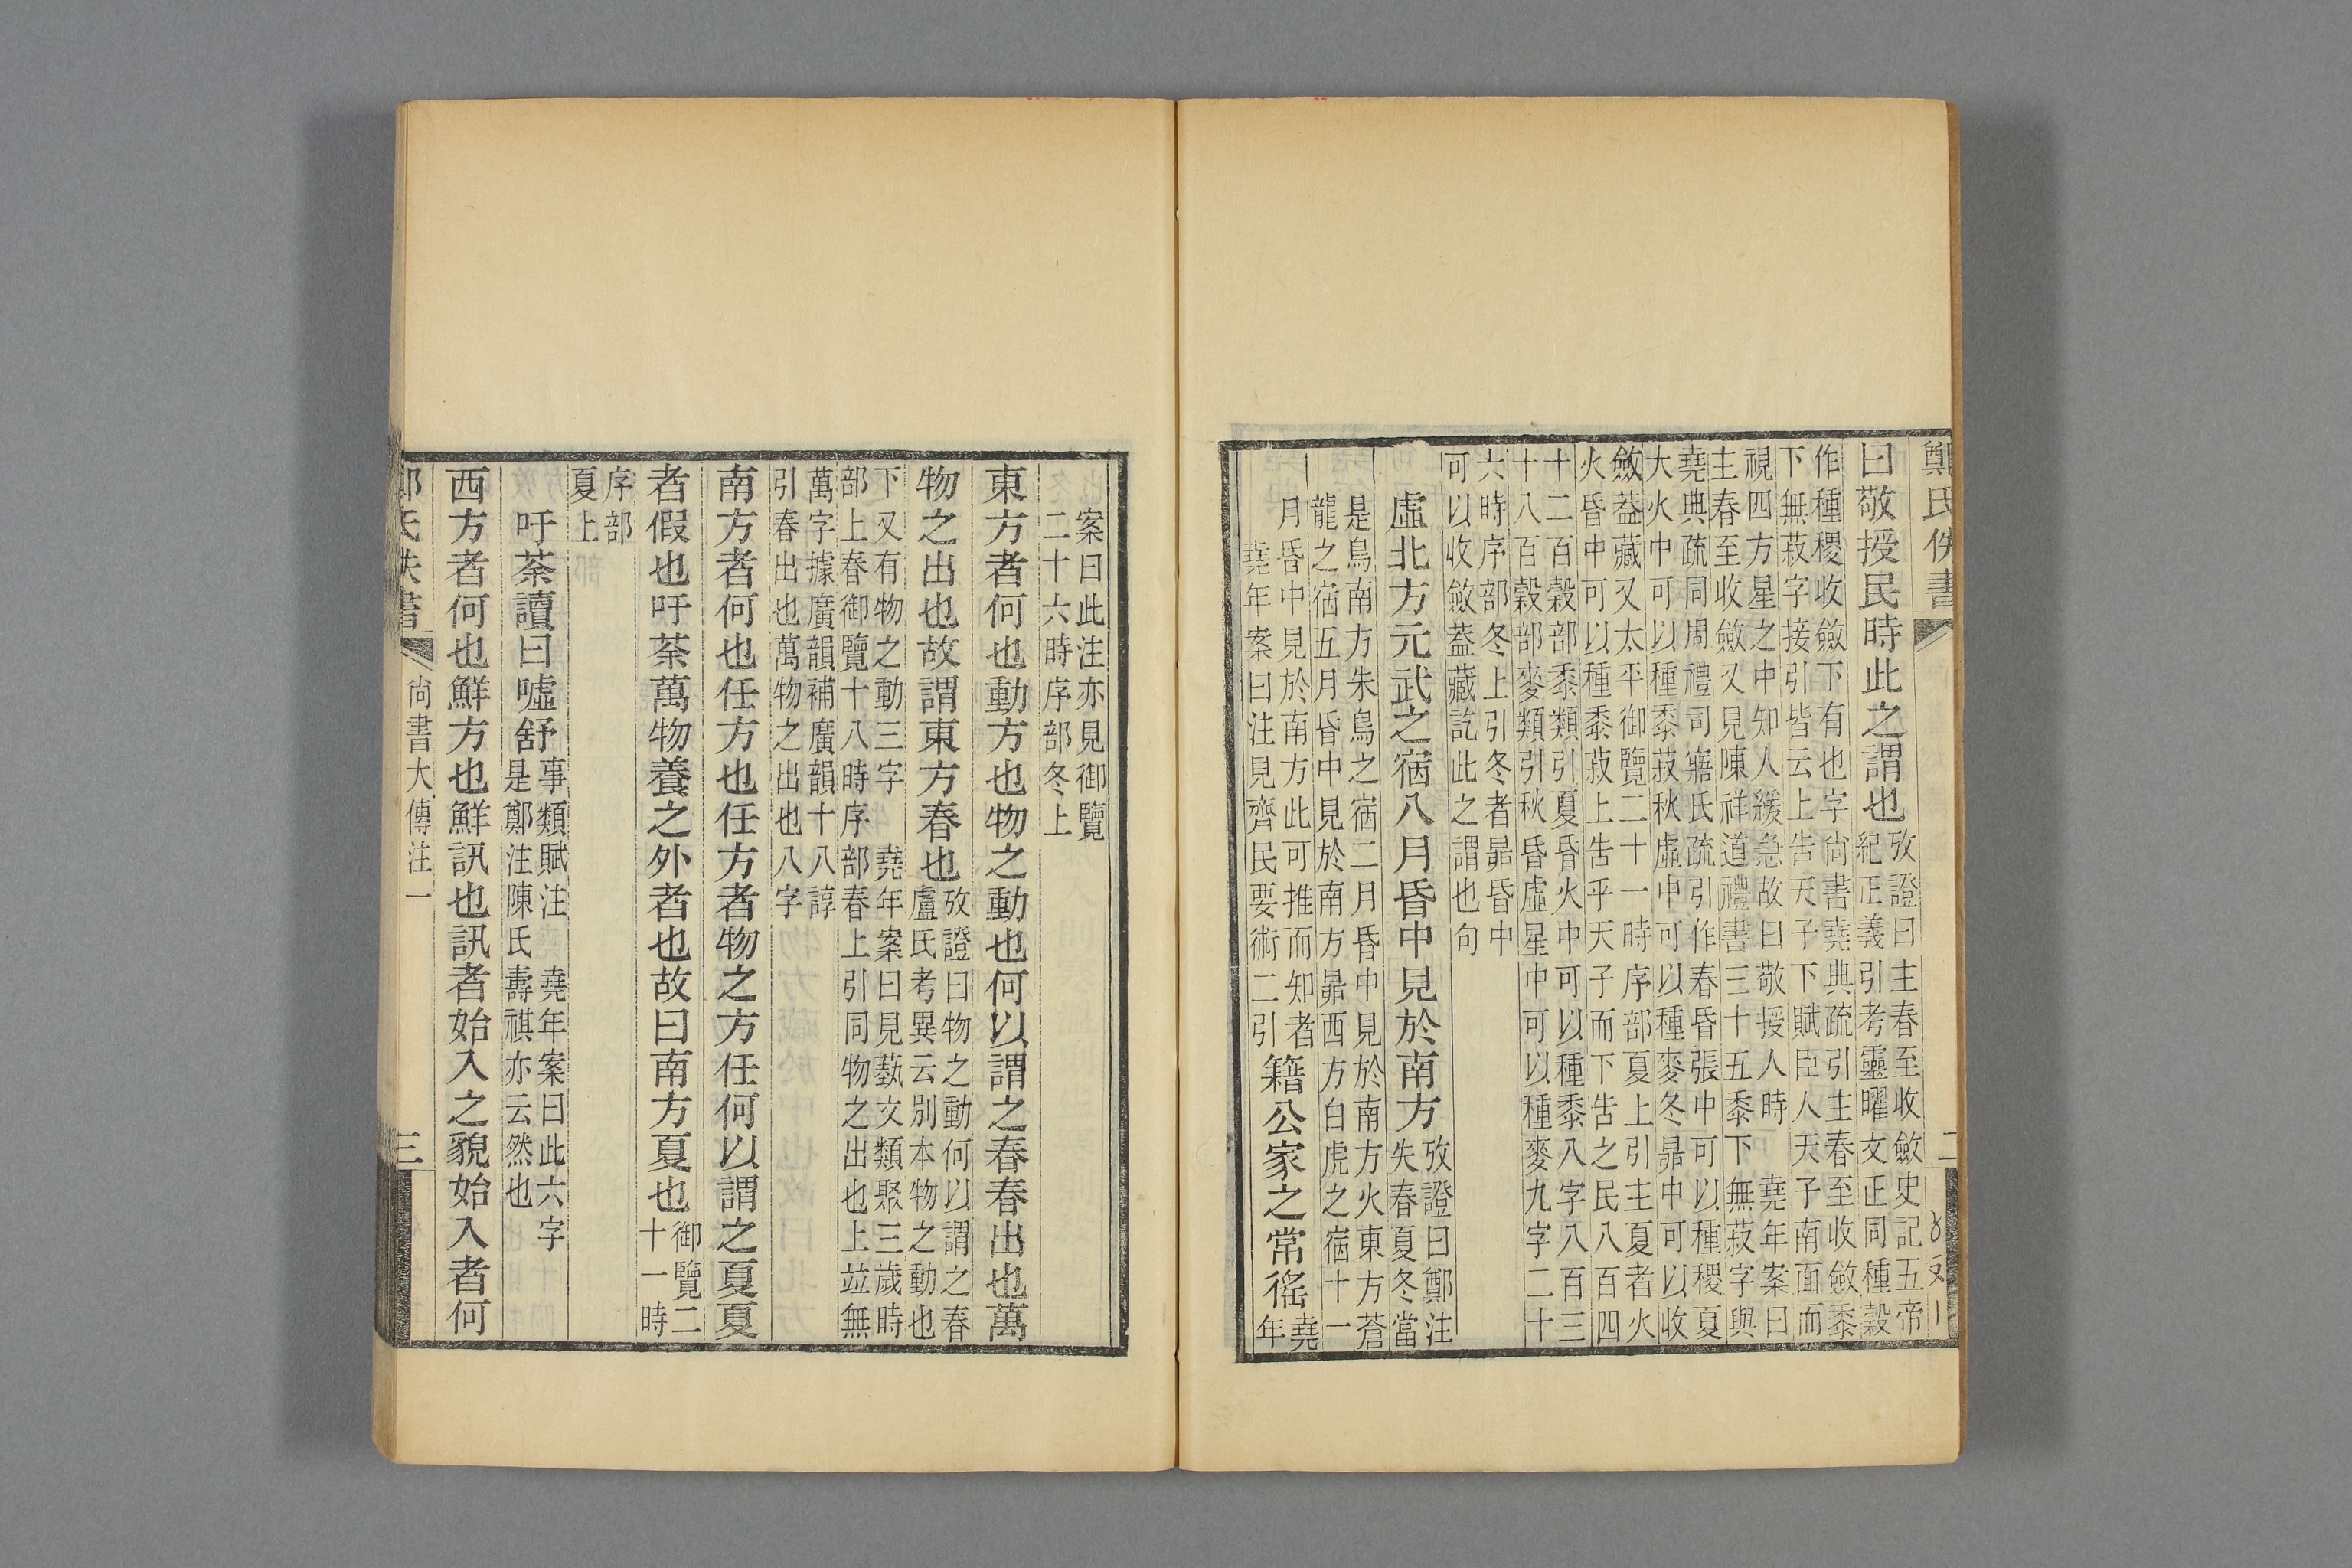 鄭氏佚書
二
曰敬授民時此之謂也攷證曰主春至收斂史記五帝
紀正義引考靈曜文正同種穀
作種稷收斂下有也字尙書堯典疏引主春至收斂黍
下無菽字接引皆云上告天子下賦臣人天子南面而
視四方星之中知人緩急故曰敬授人時 堯年案曰
主春至收斂又見陳祥道禮書三十五黍下無菽字與
堯典疏同周禮司寤氏疏引作春昏張中可以種稷夏
大火中可以種黍菽秋虛中可以種麥冬昴中可以收
斂葢藏又太平御覽二十一時序部夏上引主夏者火
火昏中可以種黍菽上告乎天子而下告之民八百四
十二百穀部黍類引夏昏火中可以種黍八字八百三
十八百穀部麥類引秋昏虛星中可以種麥九字二十
六時序部冬上引冬者昴昏中
可以收斂葢藏訖此之謂也句
虛北方元武之宿八月昏中見於南方攷證曰鄭注
失春夏冬當
是鳥南方朱鳥之宿二月昏中見於南方火東方蒼
龍之宿五月昏中見於南方昴西方白虎之宿十一
月昏中見於南方此可推而知者
堯年案曰注見齊民要術二引
籍公家之常徭堯
年
案曰此注亦見御覽
二十六時序部冬上
東方者何也動方也物之動也何以謂之春春出也萬
物之出也故謂東方春也攷證曰物之動何以謂之春
盧氏考異云別本物之動也
下又有物之動三字 堯年案曰見蓺文類聚三歲時
部上春御覽十八時序部春上引同物之出也上竝無
萬字據廣韻補廣韻十八諄
引春出也萬物之出也八字
南方者何也任方也任方者物之方任何以謂之夏夏
者假也吁荼萬物養之外者也故曰南方夏也御覽二
十一時
序部
夏上
吁荼讀曰嘘舒事類賦注 堯年案曰此六字
是鄭注陳氏壽祺亦云然也
西方者何也鮮方也鮮訊也訊者始入之貌始入者何
尙書大傳注一
三